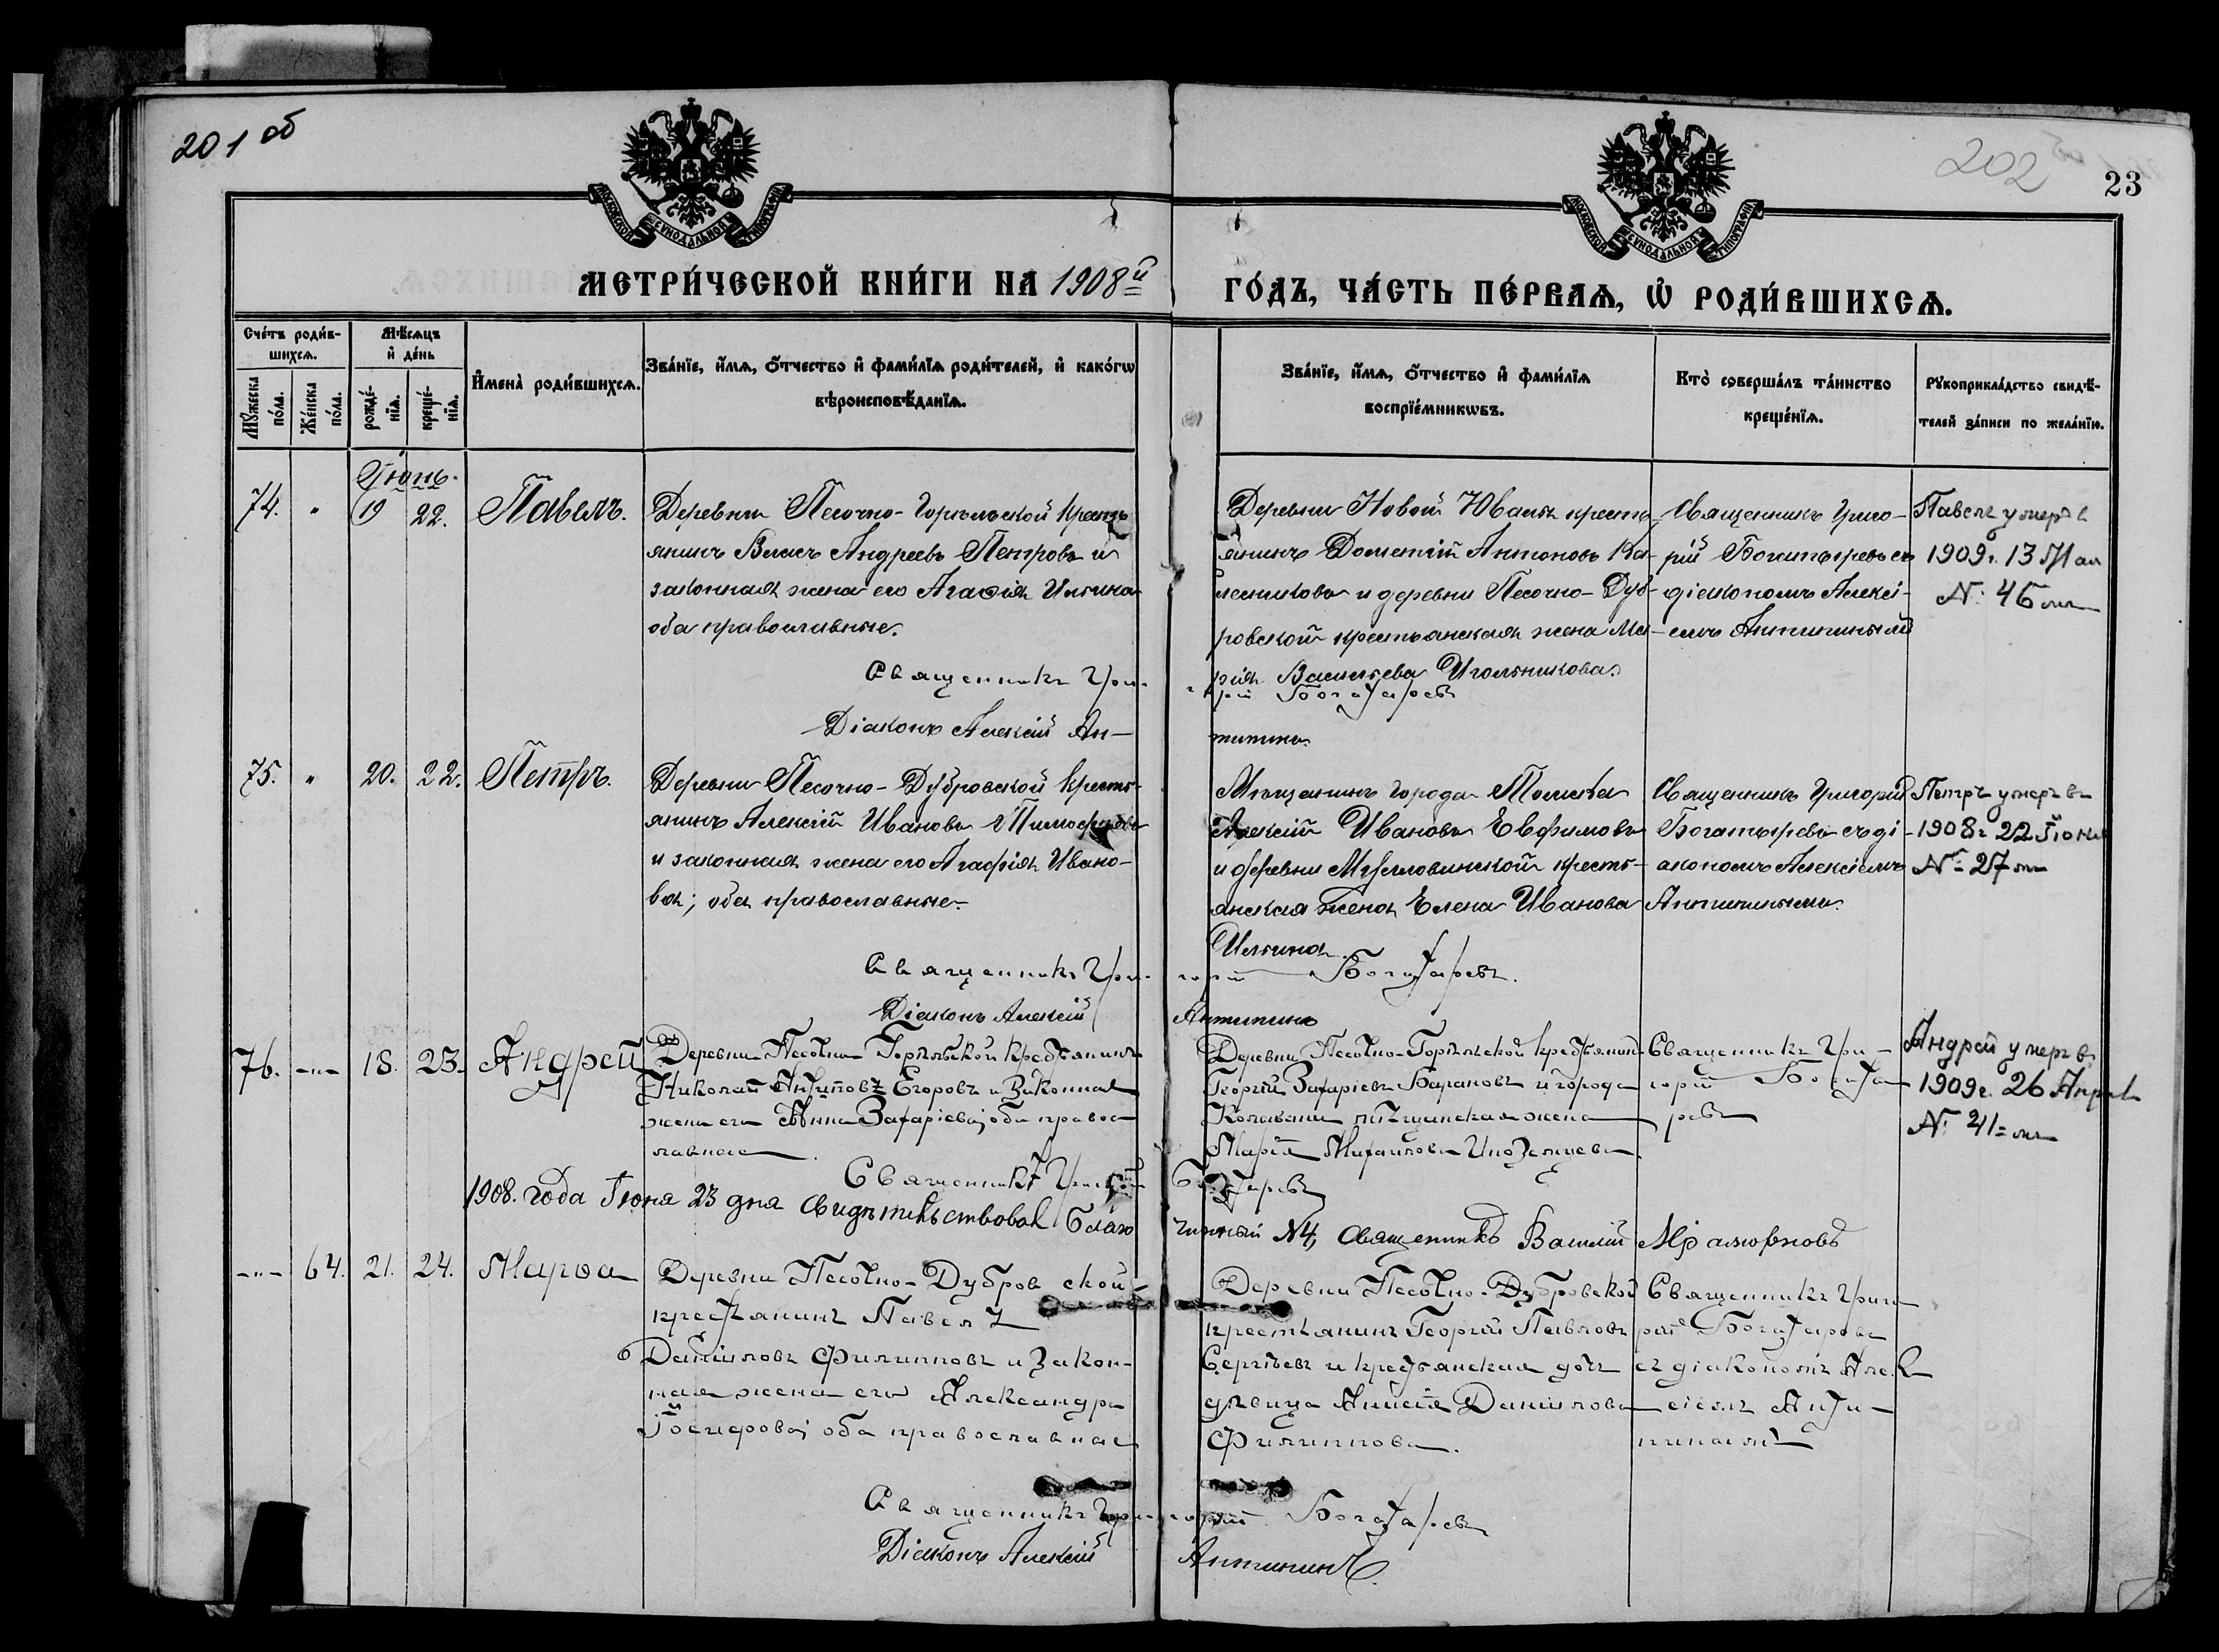 201 об
202
23
МЕТРИ́ЧЕСКОЙ КНИ́ГИ НА 1908й
ГО́ДЪ, ЧА́СТЬ ПЕ́РВАѦ, Ѡ РОДИ́ВШИХСѦ.
Сче́тъ роди́в-
шихсѧ.
Мꙋ́жеска
по́ла.
Же́нска
по́ла.
Мѣ́сѧцъ
и де́нь
рожде́-
нїѧ.
креще́-
нїѧ.
И҆мена̀ роди́вшихсѧ.
Зва́нїе, и҆́мѧ, ѻ҆́тчество и҆ фами́лїѧ роди́телей, и҆ како́гѡ
вѣроисповѣ́данїѧ.
Зва́нїе, и҆́мѧ, ѻ҆́тчество и҆ фами́лїѧ
воспрїе́мникѡвъ.
Кто̀ соверша́лъ та́инство
креще́нїѧ.
Рꙋкоприкла́дство свидѣ́-
телей за́писи по жела́нїю.
Іюнь.
74. " 19 22. Павелъ.
Деревни Песочно-Горѣльской кресть
янинъ Власъ Андреевъ Петровъ и
законная жена его Агаѳія Ильина
оба православные.
Деревни Новой Ювалы кресть-
янинъ Дометій Антоновъ Ка-
лесниковъ и деревни Песочно-Дуб-
ровской крестьянская жена Ма-
рія Васильева Игольникова.
Священникъ Григо-
рій Богатыревъ съ
діакономъ Алексі-
емъ Антипинымъ
Павелъ умеръ въ
1909 г. 13 Мая
№ 46
Священникъ Гри-
рій Богатыревъ
Діаконъ Алексій Ан-
типинъ
75. " 20. 22. Петръ.
Деревни Песочно-Дубровской кресть-
янинъ Алексій Ивановъ Тимофѣевъ
и законная жена его Агафія Ивано-
ва; оба православные.
Мѣщанинъ города Томска
Алексій Ивановъ Евфимовъ
и деревни кресть-
янская жена Елена Иванова
Ильина.
Священникъ Григорій
Богатыревъ съ ді-
акономъ Алексіемъ
Антипинымъ.
Петръ умеръ въ
1908 г. 22 Іюня
№ 27
Священникъ Гри-
горій Богатыревъ.
Діаконъ Алексій
Антипинъ
76. -"- 18. 23. Андрей
Деревни Песочно-Горѣльской крестьянинъ
Николай Антиповъ Егоровъ и законная
жена его Анна Захаріева; оба правос
лавные.
Деревни Песочно-Горѣльской крестьянинъ
Георгій Захаріевъ Барановъ и города
Колывани мѣщанская жена
Марія Михаилова Иноземцева.
Священникъ Гри-
горій Богаты
ревъ
Андрей умеръ въ
1909 г. 26 Апрѣл
№ 41
Священникъ Григорій
Богатыревъ
1908. года Іюня 23 дня Свидѣтельствовалъ благо
чинный №4, Священникъ Василій Мраморновъ
-"- 64. 21. 24. Марѳа
Деревни Песочно-Дубровской
крестьянинъ Павелъ
Даниловъ Филипповъ и закон-
ная жена его Александра
Іосифова; оба православные
Деревни Песочно-Дубровской
крестьянинъ Георгій Павловъ
Сергѣевъ и крестьянская дочь
дѣвица Анисія Данилова
Филиппова.
Священникъ Григо
рій Богатыревъ
съ діакономъ Алек
сіемъ Анти-
пинымъ
Священникъ Гри-
горій Богатыревъ
Діаконъ Алексій
Антипинъ.